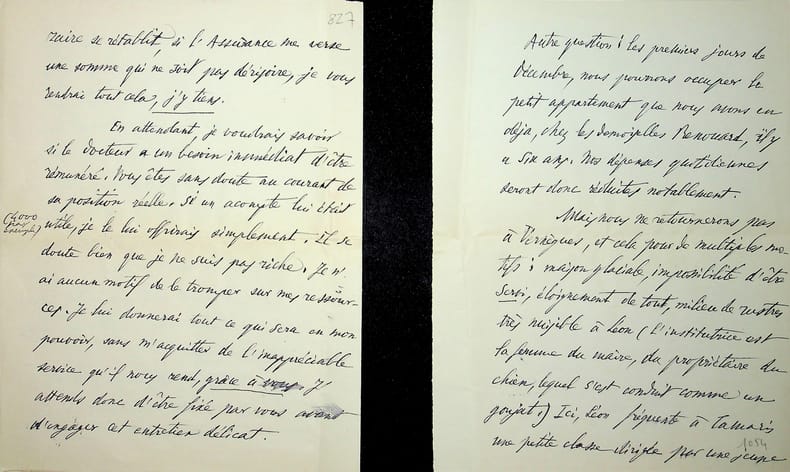 827
raire se rétablit, si l'Assurance me verse
une somme qui ne soit pas dérisoire, je vous
rendrai tout cela, j'y tiens.
En attendant je voudrais savoir
si le docteur a un besoin immédiat d'être
rémunéré. Vous êtes sans doute au courant de
sa position réelle. Si un acompte lui était
(4000
par
exemple)
utile, je le lui offrirais simplement. Il se
doute bien que je ne suis pas riche. Je n'
ai aucun motif de le tromper sur mes ressour-
ces. Je lui donnerai tout ce qui sera en mon
pouvoir, sans m'acquitter de l'inappréciable
service qu'il nous rend, grâce à vous. J'
attends donc d'être fixé par vous avant
d'engager cet entretien délicat.
Autre question : les premiers jours de
Décembre, nous pourrons occuper le
petit appartement que nous avons eu
déjà, chez les demoiselles Renouard, il y
a six ans. Nos dépenses quotidiennes
seront donc réduites notablement.
Mais nous ne retournerons pas
à Vernègues, et cela pour de multiples mo-
tifs : maison glaciale, impossibilité d'être
servi, éloignement de tout, milieu de rustres
très nuisible à Léon (l'institutrice est
la femme du maire, du propriétaire du
chien, lequel s'est conduit comme un
goujat.) Ici, Léon fréquente à Tamaris
une petite classe dirigée par une jeune
1054